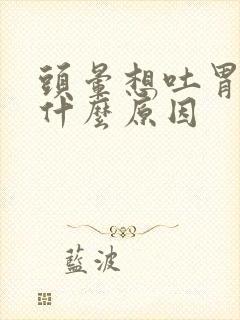 頭暈想吐胃
什麼原因
藍波